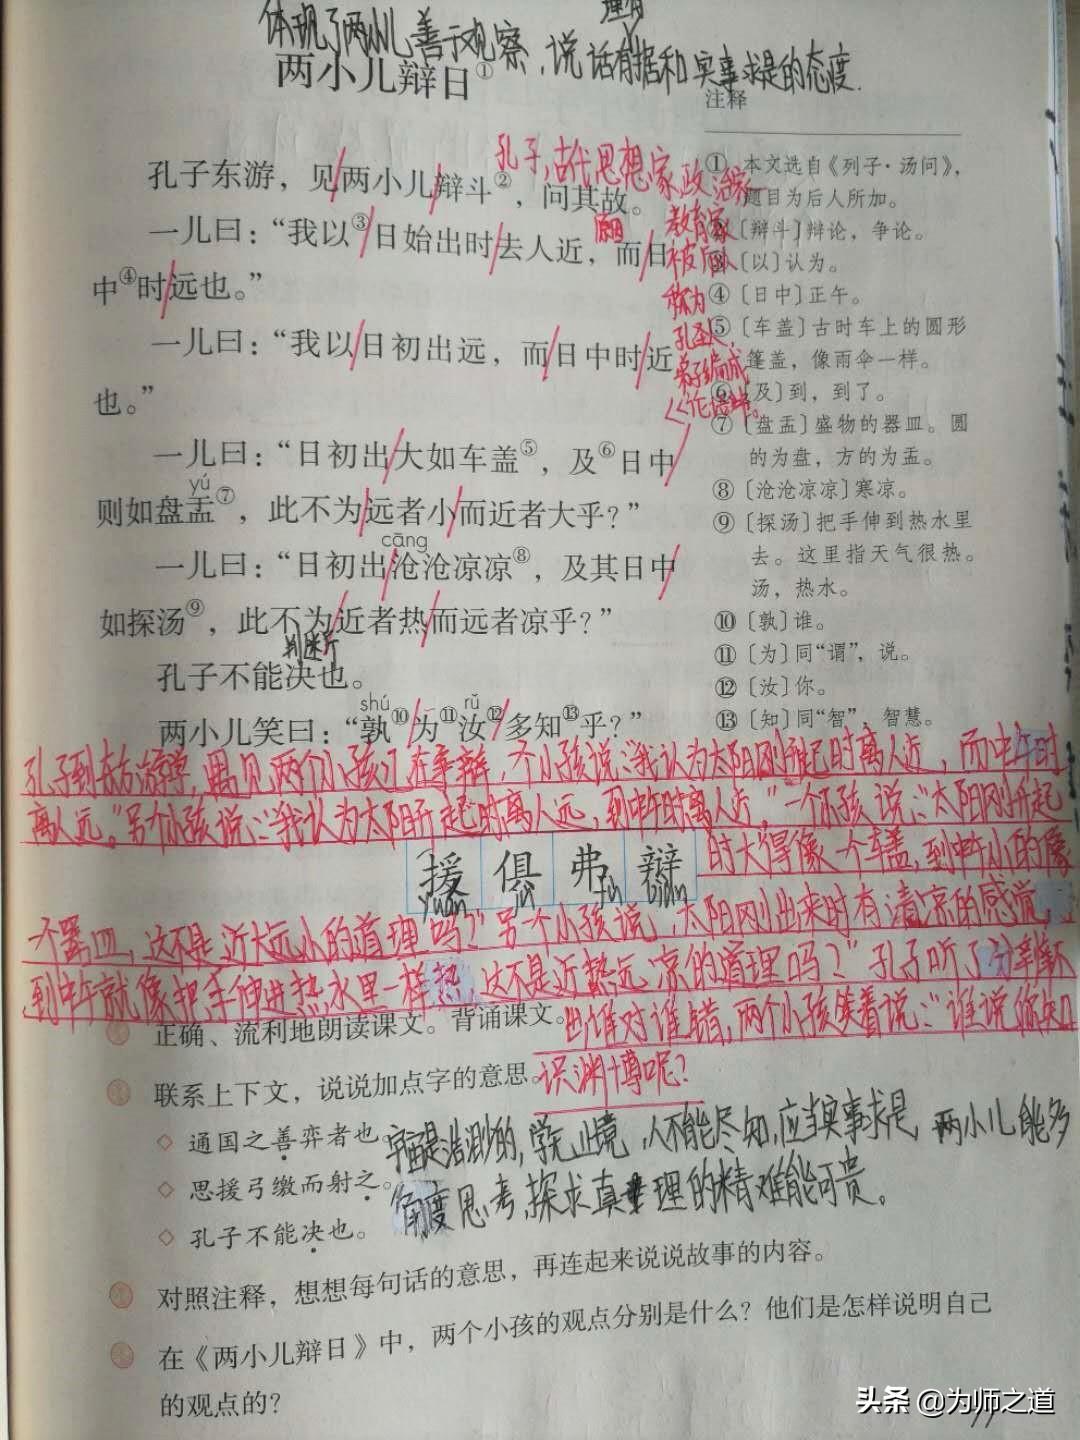 理有
体现了两小儿善于观察,说话有据和实事求是的态度.
两小儿辩日①
注释
孔子东游，见两小儿辩斗②，问其故。
一儿曰：“我以③日始出时去人近，而日
中④时远也。”
一儿曰：“我以日初出远，而日中时近
也。”
一儿曰：“日初出大如车盖⑤，及⑥日中
yú
则如盘盂⑦，此不为远者小而近者大乎？”
cāng
一儿曰：“日初出沧沧凉凉⑧，及其日中
如探汤⑨，此不为近者热而远者凉乎？”
判断
孔子不能决也。
shú rǔ
两小儿笑曰：“孰⑩为⑪汝⑫多知⑬乎？”
孔子,古代思想家,政治家
教育家
被后人
称为
孔圣人,
弟子编成
《论语》。
① 本文选自《列子·汤问》，
题目为后人所加。
〔辩斗〕辩论，争论。
〔以〕认为。
④〔日中〕正午。
⑤〔车盖〕古时车上的圆形
篷盖，像雨伞一样。
⑥〔及〕到，到了。
⑦〔盘盂〕盛物的器皿。圆
的为盘，方的为盂。
⑧〔沧沧凉凉〕寒凉。
⑨〔探汤〕把手伸到热水里
去。这里指天气很热。
汤，热水。
⑩〔孰〕谁。
⑪〔为〕同“谓”，说。
⑫〔汝〕你。
⑬〔知〕同“智”，智慧。
孔子到东方游学,遇见两个小孩儿在争辩,个小孩说:“我认为太阳刚升起时离人近,而中午时
离人远。”另个小孩说:“我认为太阳升起时离人远,到中午时离人近。”一个小孩说:“太阳刚升起
时大得像一个车盖,到中午小的像
援 俱 弗 辩
yuán jù fú biàn
个器皿,这不是近大远小的道理吗?”另个小孩说,太阳刚出来时有清凉的感觉,
到中午就像把手伸进热水里一样热,这不是近热远凉的道理吗?”孔子听了分辩不
出谁对谁错,两个小孩笑着说:“谁说你知
识渊博呢?
正确、流利地朗读课文。背诵课文。
联系上下文，说说加点字的意思。
◇ 通国之善弈者也
◇ 思援弓缴而射之。
◇ 孔子不能决也。
宇宙是浩渺的,学无止境,人不能尽知,应当实事求是,两小儿能多
角度思考,探求真理的精难能可贵。
对照注释，想想每句话的意思，再连起来说说故事的内容。
在《两小儿辩日》中，两个小孩的观点分别是什么？他们是怎样说明自己
的观点的？
头条 @为师之道